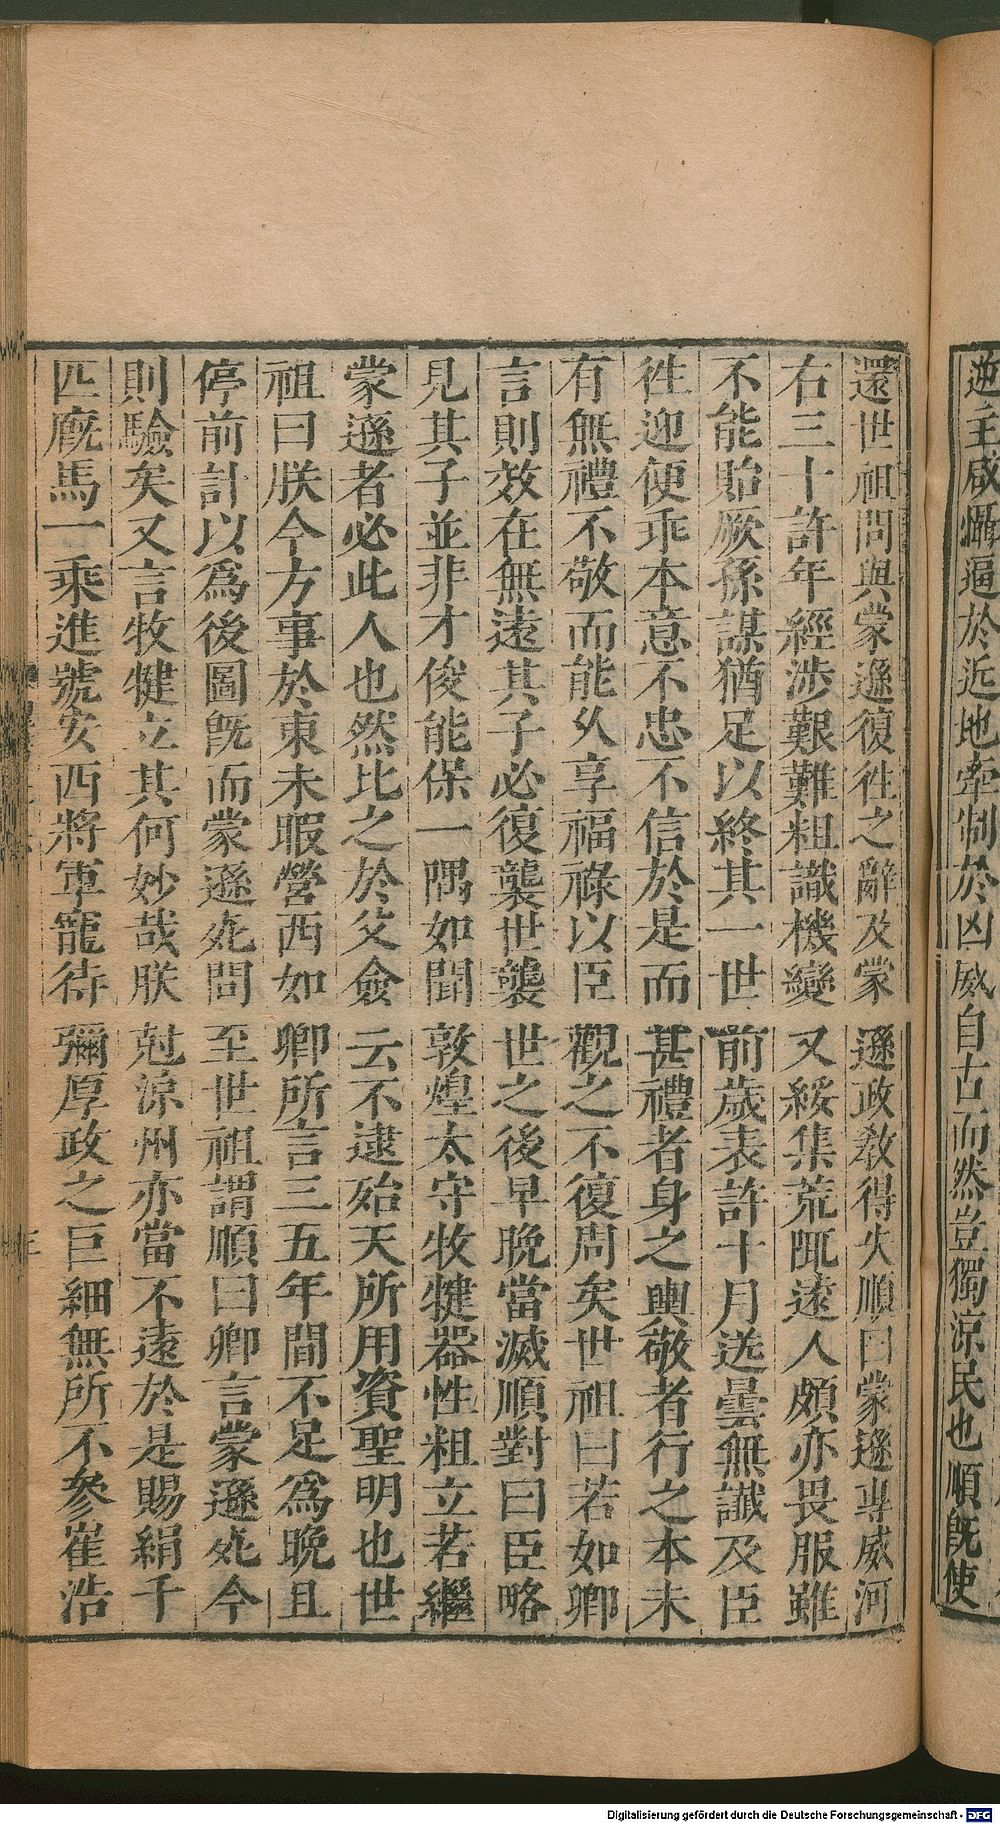 逆主咸懾逼於近地牽制於凶威自古而然豈獨涼民也順既使
還世祖問與蒙遜復徃之辭及蒙遜政教得失順曰蒙遜專威河
右三十許年經涉艱難粗識機變又綏集荒陬遠人頗亦畏服雖
不能貽厥孫謀猶足以終其一世前歲表許十月送曇無讖及臣
徃迎便乖本意不忠不信於是而甚禮者身之輿敬者行之本未
有無禮不敬而能久享福祿以臣觀之不復周矣世祖曰若如卿
言則效在無遠其子必復襲世襲世之後早晚當滅順對曰臣略
見其子並非才俊能保一隅如聞敦煌太守牧犍器性粗立若繼
蒙遜者必此人也然比之於父僉云不逮殆天所用資聖明也世
祖曰朕今方事於東未暇營西如卿所言三五年間不足爲晚且
停前計以爲後圖既而蒙遜死問至世祖謂順曰卿言蒙遜死今
則驗矣又言牧犍立其何妙哉朕尅涼州亦當不遠於是賜絹千
匹廐馬一乘進號安西將軍寵待彌厚政之巨細無所不參崔浩
Digitalisierung gefördert durch die Deutsche Forschungsgemeinschaft - DFG